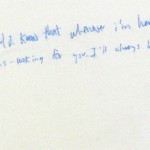 know that whenever i'm
waiting for you. I'll always